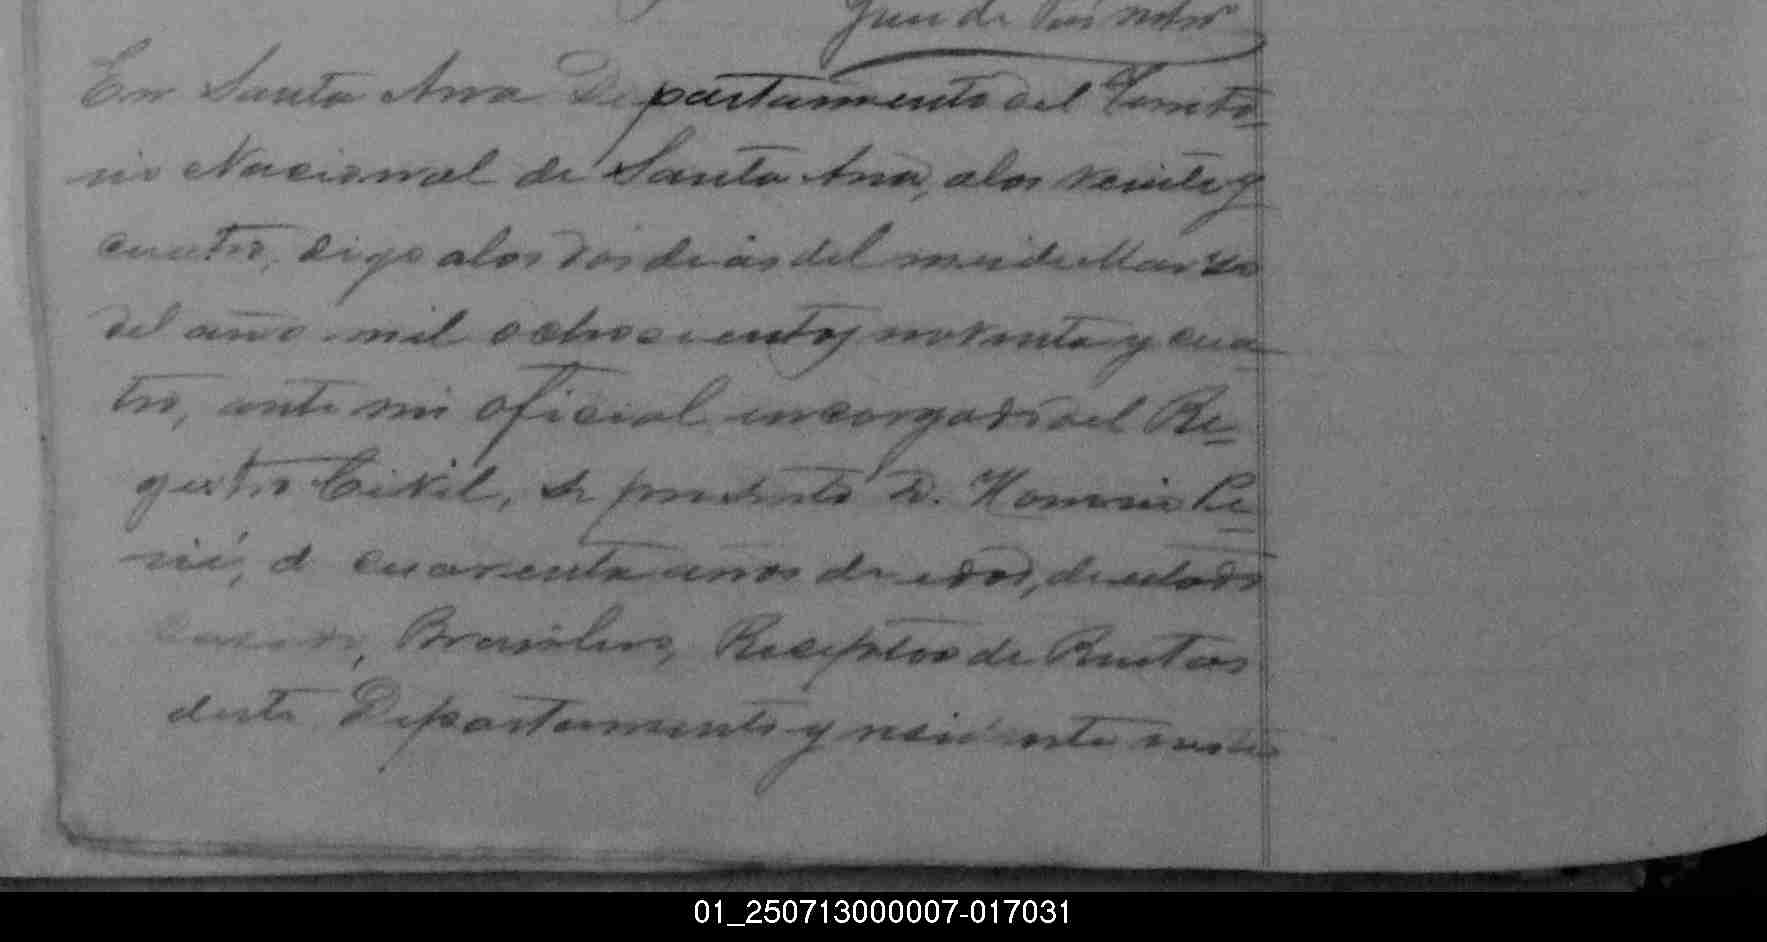 Juez de Paz
En Santa Ana Departamento del Territo-
rio Nacional de Santa Ana, alos veinte y
cuatro, digo alos dos dias del mes de Marzo
del año mil ochocientos noventa y cua-
tro, ante mi oficial encargado del Re-
gistro Civil, se presentó D. Homerio
de cuarenta años de edad, de estado
casado, Brasilero, Receptor de Rentas
desta Departamento y
01_250713000007-017031